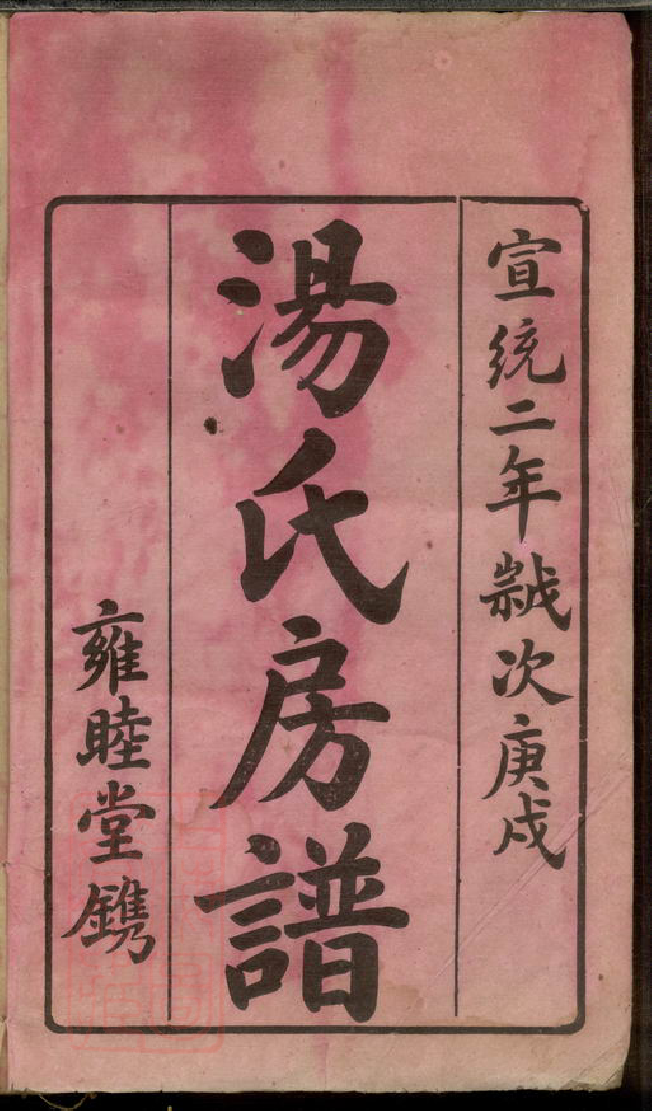 宣統二年歲次庚戌
湯氏房譜
雍睦堂鐫